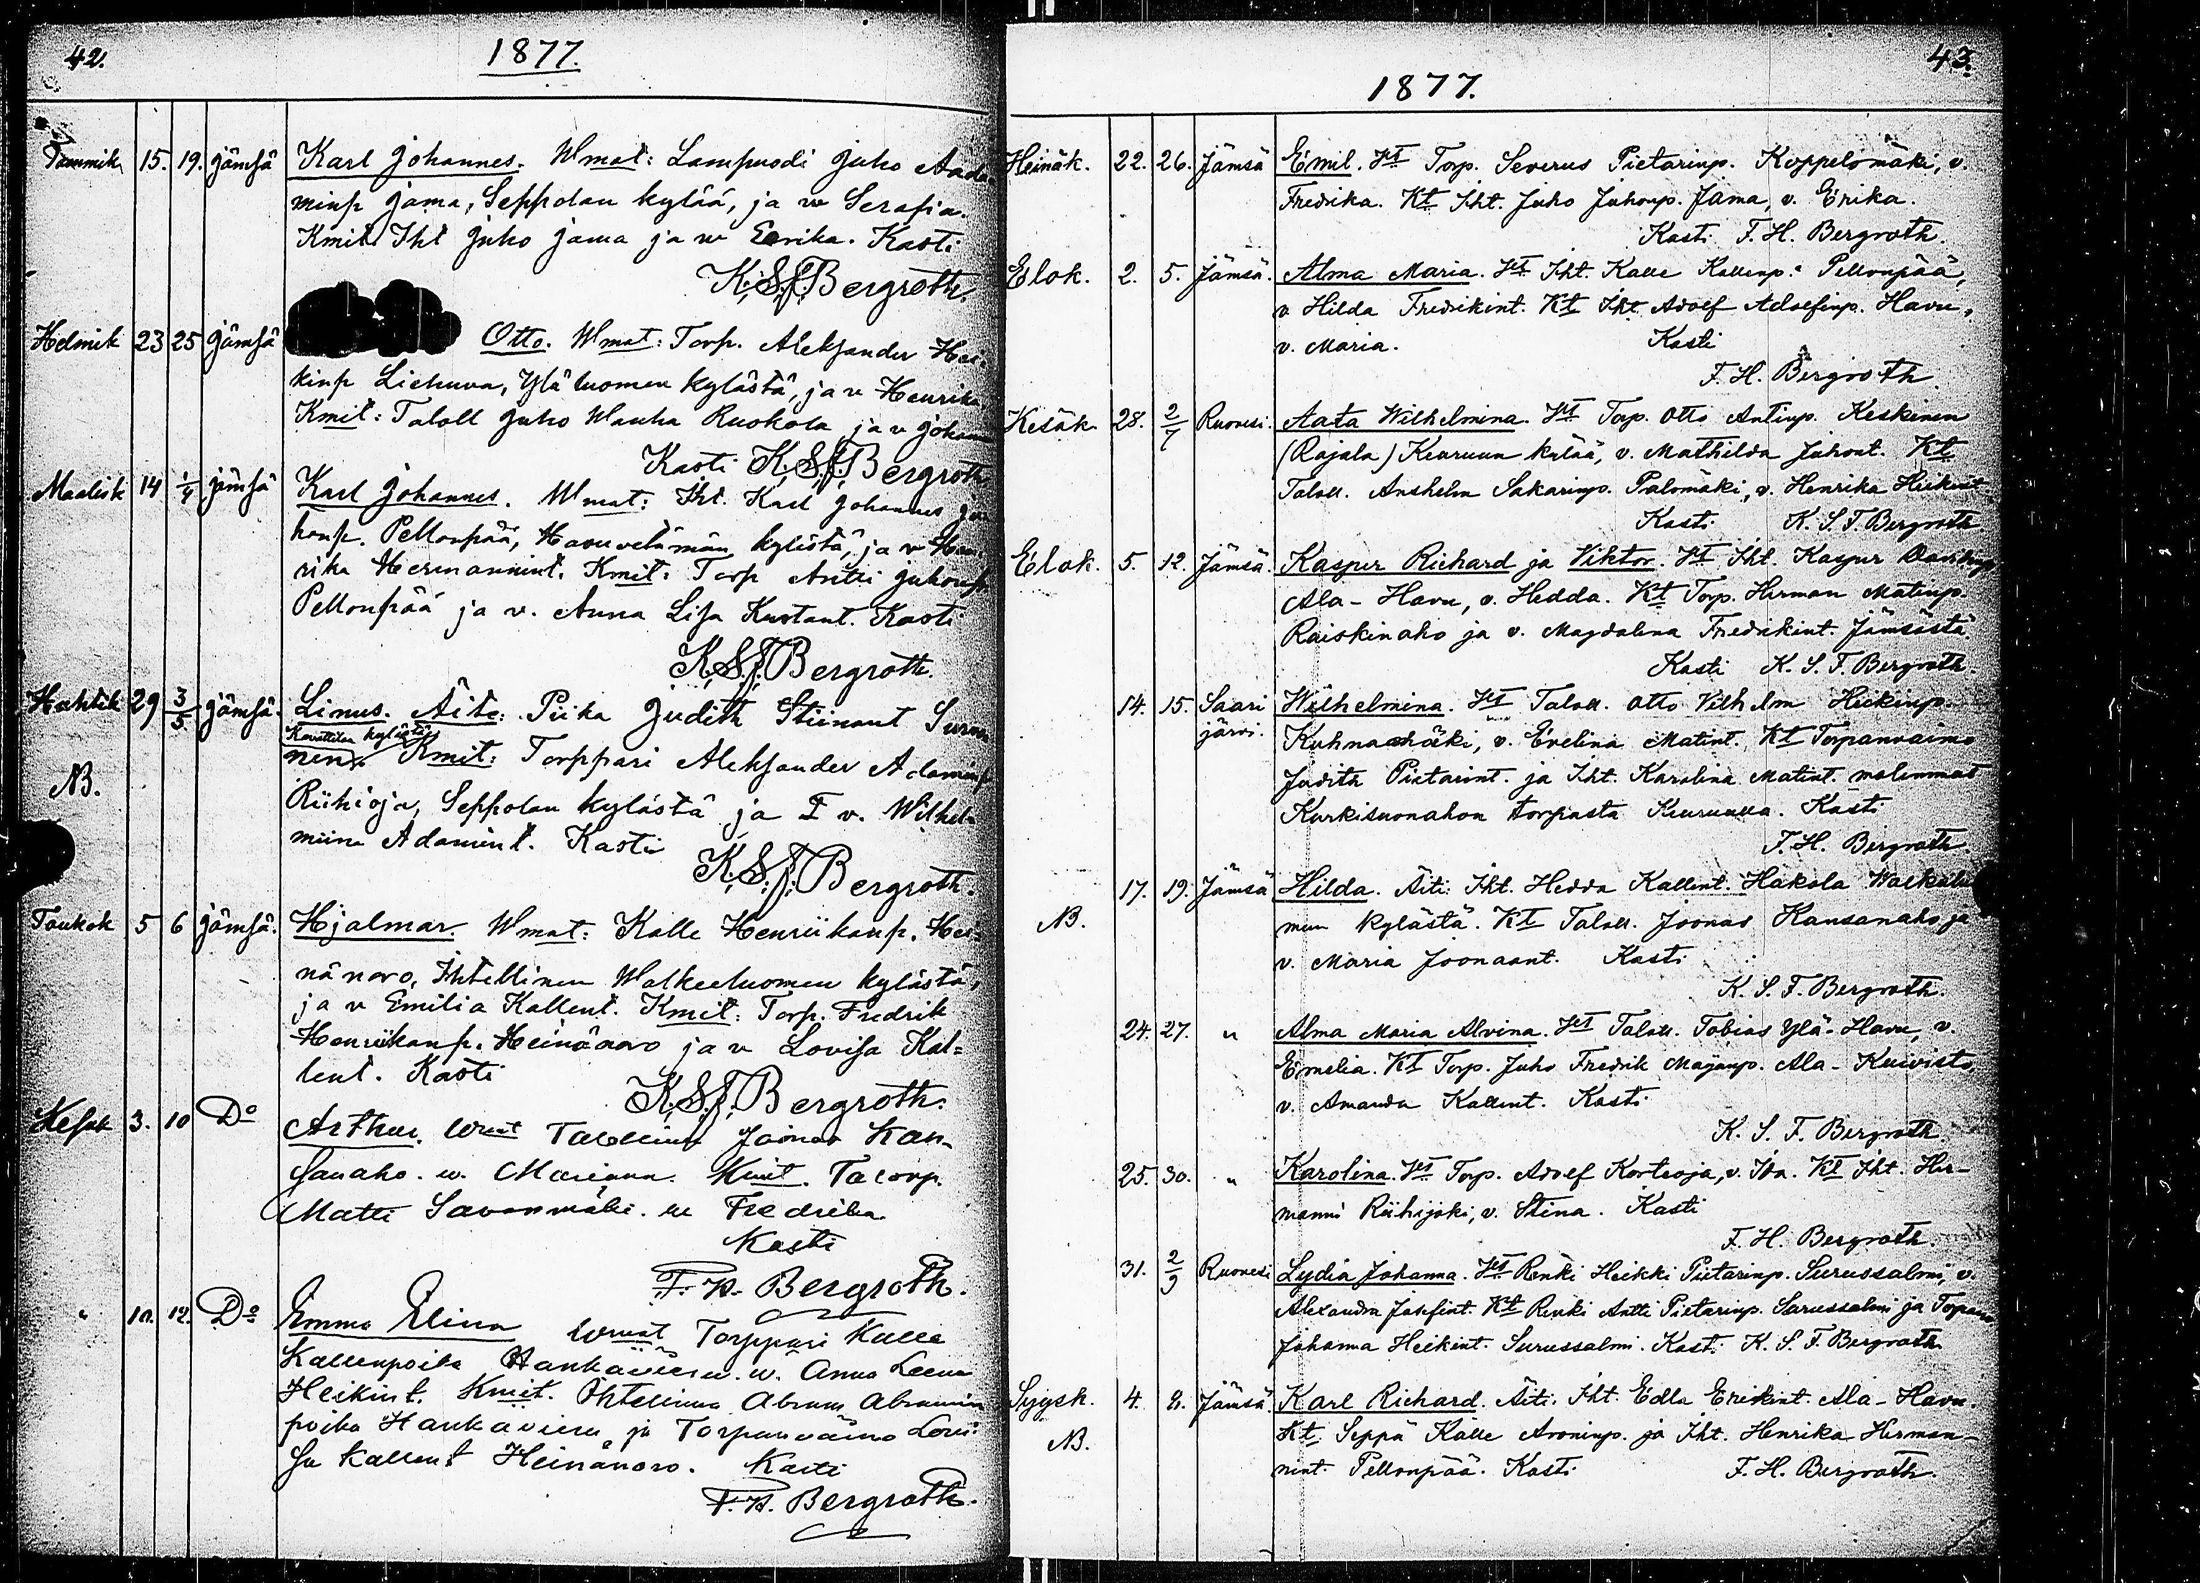 42.
1877.
Tammik 15. 19. Jämsä Karl Johannes. Wmat: Lampuodi Juho Aada
minp Jama, Seppolan kylää, ja w Serafia.
Kmit Iht Juho Jama ja w Eerika. Kasti
K. S. F. Bergroth.
Helmik 23 25 Jämsä Otto. Wmat: Torp. Aleksander Hei
kinp Liehuva, Yläluomen kylästä, ja v Henrika
Kmit: Taloll Juho Wanha Ruokola ja v Johann
Kasti K. S. F. Bergroth
Maalisk 14 1/4 Jämsä Karl Johannes. Wmat: Iht. Karl Johannes Ju
honp. Pellonpää, kylästä, ja v Hen
rika Hermannint. Kmit: Torp Antti Juhonp.
Pellonpää ja v. Anna Lisa Kustant. Kasti
K. S. F. Bergroth.
Huhtik 29 3/5 Jämsä. Linus. Äite: Piika Judith Stiinant Surun
kylästä
nen. Kmit: Torppari Aleksander Adaminp
NB.
Riihioja, Seppolan kylästä ja I v. Wilhel
miina Adamint. Kasti
K. S. F. Bergroth.
Toukok 5 6 Jämsä. Hjalmar. Wmat: Kalle Henriikanp. Hei-
nänoro, Ihtellinen Walkeeluomen kylästä,
ja v Emilia Kallent. Kmit: Torp. Fredrik
Henriikanp. Heinänoro ja v Lovisa Kal=
lent. Kasti
K. S. F. Bergroth.
Kesäk 3. 10 Do Arthur. Wmat Joonas Kan-
sanaho. w. Marianna. Kmit.
Matti Savonmäki. w Fredrika
Kasti
F. H. Bergroth.
" 10. 12. Do Emma Elina Wmat Torppari Kalle
Kallenpoika Haukavieru. w. Anna Leena
Heikint. Kmit. Ihtellinen Abram Abramin
poika Haukavieru ja Torpanväimo Lovi-
sa Kallent Heinänoro. Kasti
F. H. Bergroth.
43.
1877.
Heinäk. 22. 26. Jämsä Emil. Vt Torp. Severus Pietarinp. Koppelomäki, v.
Fredrika. Kt Iht. Juho Juhonp. Jama, v. Erika.
Kasti F. H. Bergroth.
Elok. 2. 5. Jämsä. Alma Maria. Vt Iht. Kalle Kallenp. Pellonpää,
v Hilda Fredrikint. Kt Iht Adolf Adolfinp. Havu,
v. Maria. Kasti
F. H. Bergroth.
Kesäk 28. 2/7 Ruovesi. Aata Wilhelmina. Vt Torp. Otto Antinp. Keskinen
(Rajala) Keuruun kylää, v. Mathilda Juhont. Kt
Taloll. Anshelm Sakarinp. Palomäki, v. Henrika Heikint
Kasti K. S. F. Bergroth
Elok. 5. 12. Jämsä. Kasper Richard ja Viktor. Vt Iht. Kasper Davidinp
Ala-Havu, v. Hedda. Kt Torp. Herman Matinp.
Raiskinaho ja v. Magdalena Fredrikint. Jämsästä
Kasti K. S. F. Bergroth.
14. 15. Saari Wilhelmina. Vt Taloll. Otto Vilhelm Heikinp.
järvi. v. Evelina Matint. Kt Torpanvaimo
Judith Pietarint. ja Iht. Karolina Matint. molemmat
Kurkisuonahon torpasta Keuruulla. Kasti
F. H. Bergroth
17. 19. Jämsä Hilda. Äiti. Iht. Hedda Kallent. Hakola
NB. kylästä. Kt Taloll. Joonas Kansanaho ja
v. Maria Joonaant. Kasti
K. S. F. Bergroth.
24. 27. " Alma Maria Alvina. Vt Taloll. Tobias Ylä-Havu, v.
Emelia. Kt Torp. Juho Fredrik Maijanp. Ala-Kuivisto,
v. Amanda Kallent. Kasti
K. S. F. Bergroth
25. 30. " Karolina. Vt Torp. Adolf Korteoja, v. Ida. Kt Iht. Her-
manni Riihijoki, v. Stina. Kasti
F. H. Bergroth.
31. 2/9 Ruovesi Lydia Johanna. Vt Renki Heikki Pietarinp. Surussalmi, v.
Alexandra Josefint. Kt Renki Antti Pietarinp. Surussalmi ja
Johanna Heikint. Surussalmi. Kasti K. S. F. Bergroth
Syysk. 4. 8. Jämsä. Karl Richard. Äiti. Iht. Edla Erikint. Ala-Havu.
NB. Kt Seppä Kalle Aroninp. ja Iht. Henrika Herman-
nint. Pellonpää. Kasti F. H. Bergroth.